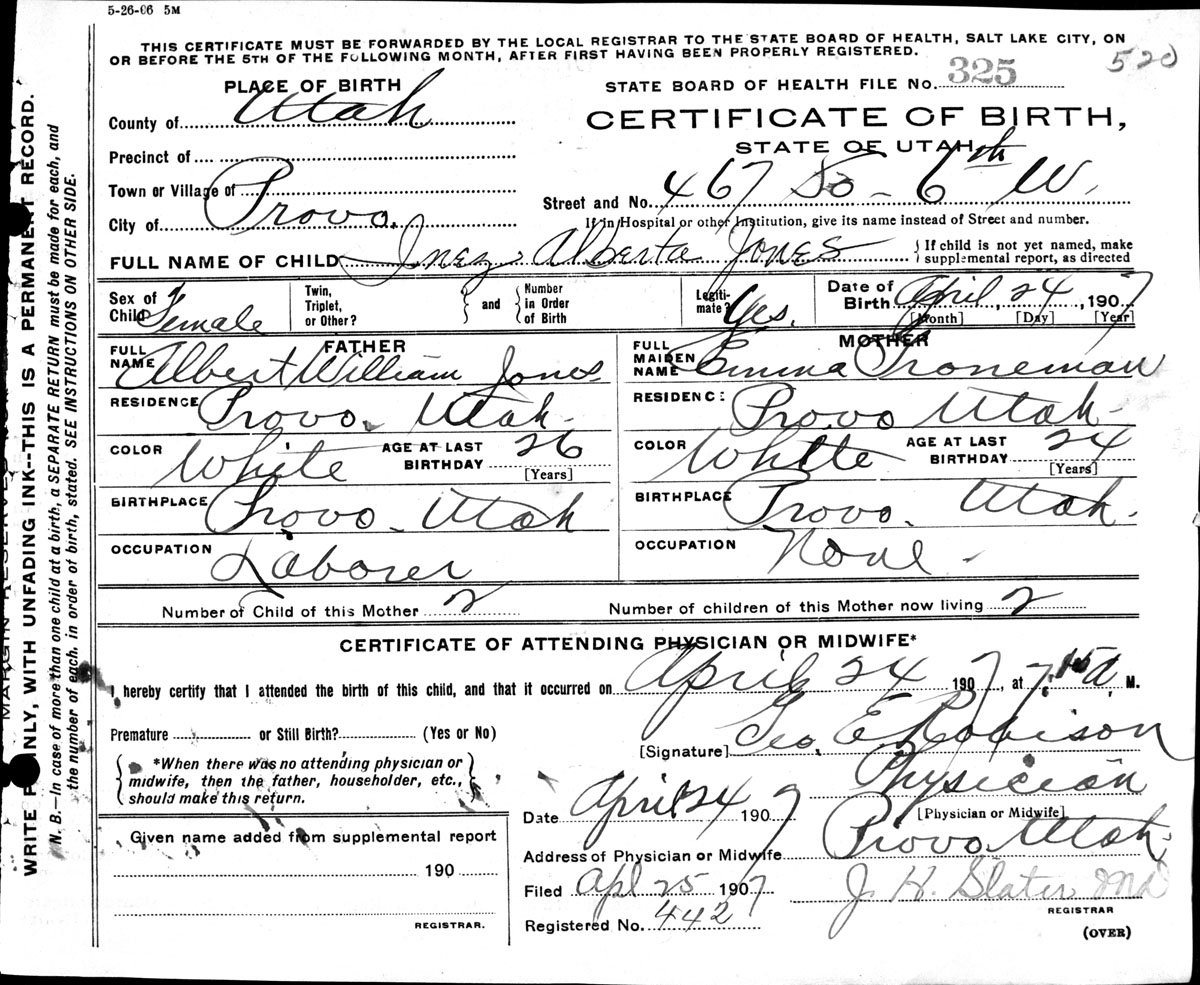 5-26-06 5M
THIS CERTIFICATE MUST BE FORWARDED BY THE LOCAL REGISTRAR TO THE STATE BOARD OF HEALTH, SALT LAKE CITY, ON
OR BEFORE THE 5TH OF THE FOLLOWING MONTH, AFTER FIRST HAVING BEEN PROPERLY REGISTERED.
520
PLACE OF BIRTH
STATE BOARD OF HEALTH FILE No. 325
County of Utah
CERTIFICATE OF BIRTH,
STATE OF UTAH
Precinct of
Town or Village of
Street and No. 467 So - 6th W.
City of Provo.
If in Hospital or other Institution, give its name instead of Street and number.
FULL NAME OF CHILD Inez Alberta Jones
If child is not yet named, make
supplemental report, as directed
Sex of Child Female
Twin, Triplet, or Other?
and
Number in Order of Birth
Legiti-mate? Yes.
Date of Birth April 24, 1907
[Month] [Day] [Year]
FATHER
FULL NAME Albert William Jones
RESIDENCE Provo. Utah.
COLOR White AGE AT LAST BIRTHDAY 26
[Years]
BIRTHPLACE Provo - Utah
OCCUPATION Laborer
MOTHER
FULL MAIDEN NAME Emma
RESIDENC: Provo Utah-
COLOR White AGE AT LAST BIRTHDAY 24
[Years]
BIRTHPLACE Provo. Utah.
OCCUPATION None -
Number of Child of this Mother 2
Number of children of this Mother now living 2
CERTIFICATE OF ATTENDING PHYSICIAN OR MIDWIFE*
I hereby certify that I attended the birth of this child, and that it occurred on April 24 1907, at 7 A. M.
Premature or Still Birth? (Yes or No)
[Signature] Geo. E Robison
*When there was no attending physician or
midwife, then the father, householder, etc.,
should make this return.
Physician
[Physician or Midwife]
Date April 24 1907
Address of Physician or Midwife Provo Utah.
Given name added from supplemental report
190
REGISTRAR.
Filed Apl 25 1907
J. H. Slater MD
REGISTRAR
Registered No. 442
(OVER)
WRITE PLAINLY, WITH UNFADING INK--THIS IS A PERMANENT RECORD.
N. B.—In case of more than one child at a birth, a SEPARATE RETURN must be made for each, and
the number of each, in order of birth, stated. SEE INSTRUCTIONS ON OTHER SIDE.